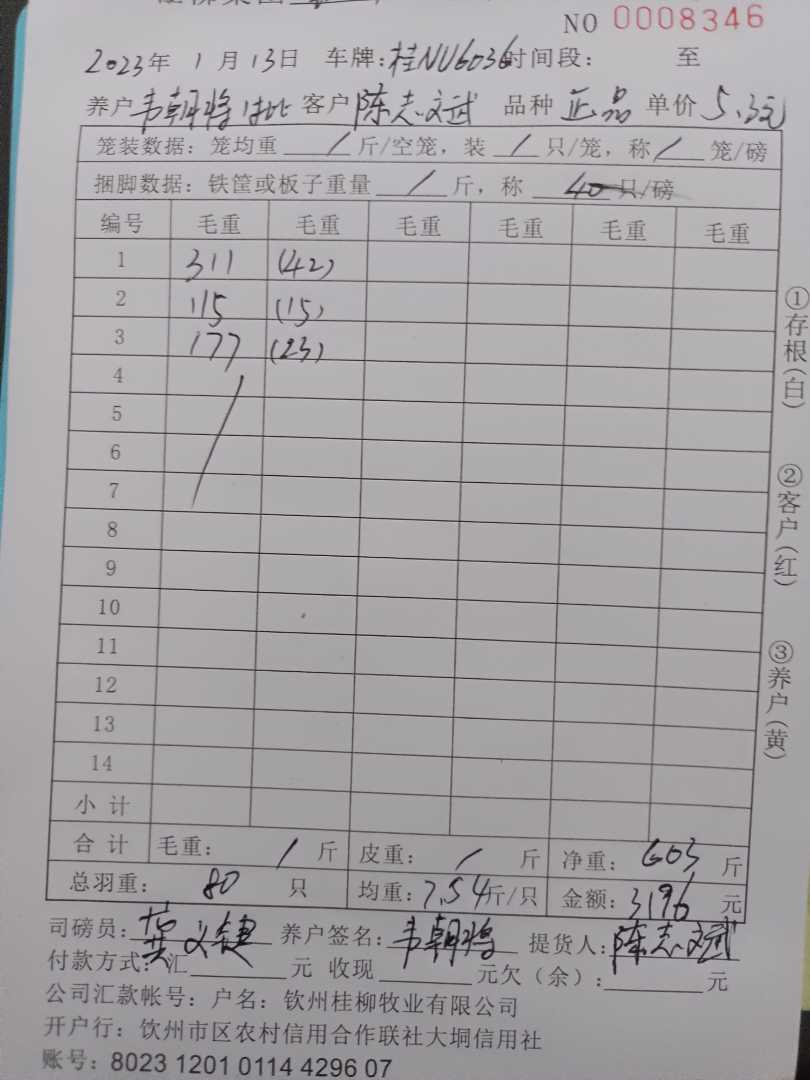 NO 0008346
2023年 1月13日 车牌:桂NU6036时间段: 至
养户韦朝将 客户陈志斌 品种 正品 单价 5.3元
笼装数据: 笼均重 / 斤/空笼, 装 / 只/笼, 称 / 笼/磅
捆脚数据: 铁筐或板子重量 / 斤, 称 40 只/磅
编号 毛重 毛重 毛重 毛重 毛重 毛重
1 311 (42)
2 115 (15)
3 177 (23)
4
5
6
7
8
9
10
11
12
13
14
小计
合计 毛重: / 斤 皮重: / 斤 净重: 603 斤
总羽重: 80 只 均重: 7.54斤/只 金额: 3196 元
司磅员: 黄义键 养户签名: 韦朝将 提货人: 陈志斌
付款方式: 汇 元 收现 元欠(余): 元
公司汇款帐号: 户名: 钦州桂柳牧业有限公司
开户行: 钦州市区农村信用合作联社大垌信用社
账号: 8023 1201 0114 4296 07
①存根(白)
②客户(红)
③养户(黄)